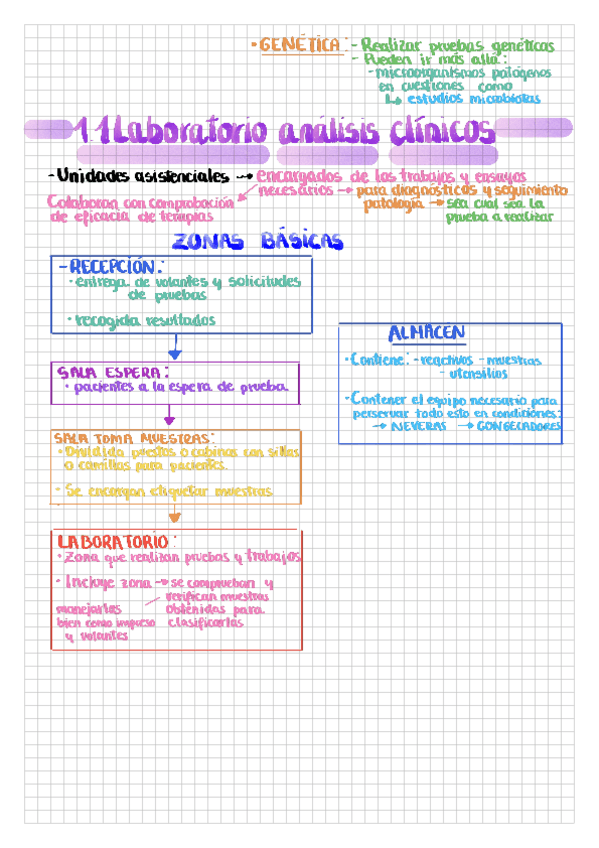 • GENÉTICA: - Realizar pruebas genéticas
- Pueden ir más allá:
- microorganismos patógenos
en cuestiones como
↳ estudios microbiotas
1.1 Laboratorio análisis clínicos
- Unidades asistenciales → encargados de los trabajos y ensayos
necesarios → para diagnósticos y seguimiento
patología → sea cual sea la
prueba a realizar
Colaboran con comprobación
de eficacia de terapias
ZONAS BÁSICAS
- RECEPCIÓN:
• entrega de volantes y solicitudes
de pruebas
• recogida resultados
SALA ESPERA:
• pacientes a la espera de prueba.
SALA TOMA MUESTRAS:
• Dividida puestos o cabinas con sillas
o camillas para pacientes.
• Se encargan etiquetar muestras
LABORATORIO:
• Zona que realizan pruebas y trabajos
• Incluye zona → se comprueban y
verifican muestras
obtenidas para
clasificarlas
manejarlas
bien como impreso
y volantes
ALMACEN
• Contiene: - reactivos - muestras
- utensilios
• Contener el equipo necesario para
perservar todo esto en condiciones:
→ NEVERAS → CONGECADORES